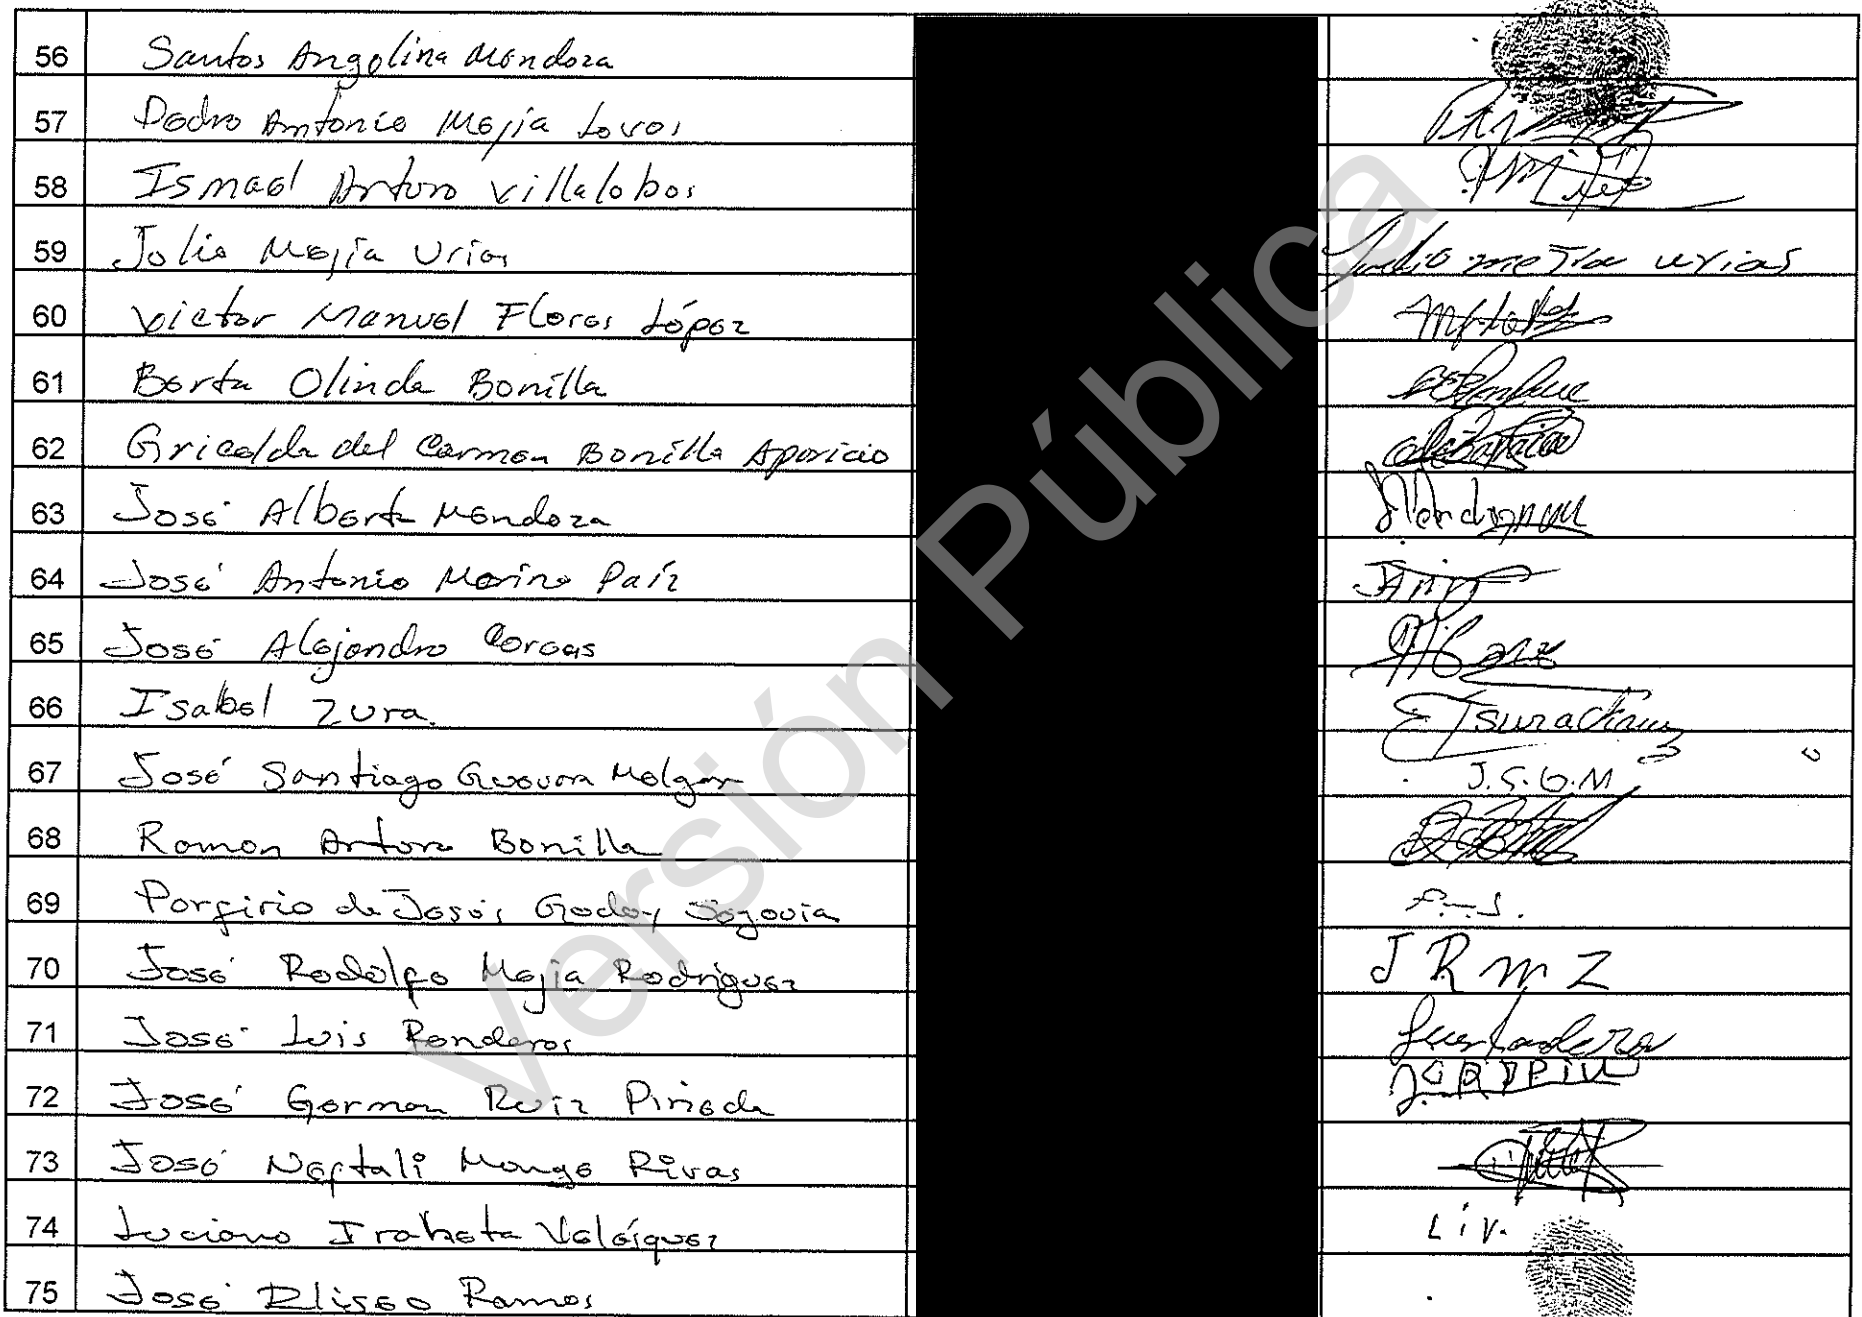 56 Santos Angelina Mendoza
57 Pedro Antonio Mejia Lovos
58 Ismael Arturo Villalobos
59 Julio Mejía Urias Julio mejia urias
60 Victor Manuel Flores López
61 Berta Olinda Bonilla
62 Gricelda del Carmen Bonilla Aparicio
63 José Alberto Mendoza
64 José Antonio Merino Paíz
65 José Alejandro Porcas
66 Isabel Zura.
67 José Santiago Guevara Melgar J.S.G.M
68 Ramon Arturo Bonilla
69 Porfirio de Jesús Godoy Segovia
70 José Rodolfo Mejia Rodríguez J R M Z
71 José Luis Renderos
72 José German Ruiz Pineda
73 José Neftali Monge Rivas
74 Luciano Iraheta Velásquez L i V.
75 José Eliseo Ramos
Versión Pública